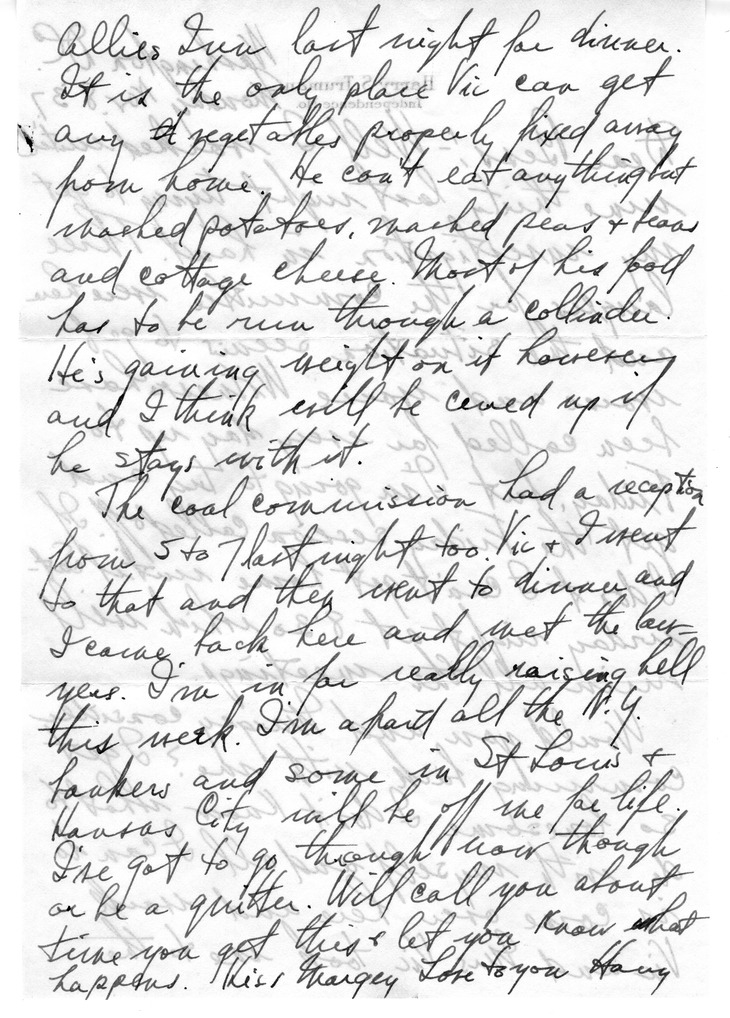 Allies Inn last night for dinner.
It is the only place Vic can get
any vegetables properly fixed away
from home. He can't eat anything but
mashed potatoes, mashed peas & beans
and cottage cheese. Most of his food
has to be run through a collinder.
He's gaining weight on it however
and I think will be cured up if
he stays with it.
The coal commission had a reception
from 5 to 7 last night too. Vic & I went
to that and then went to dinner and
I came back here and met the law-
yers. I'm in for really raising hell
this week. I'm afraid all the N.Y.
bankers and some in St Louis &
Kansas City will be off me for life.
I've got to go through now though
or be a quitter. Will call you about
time you get this & let you know what
happens. Kiss Margey Love to you Harry